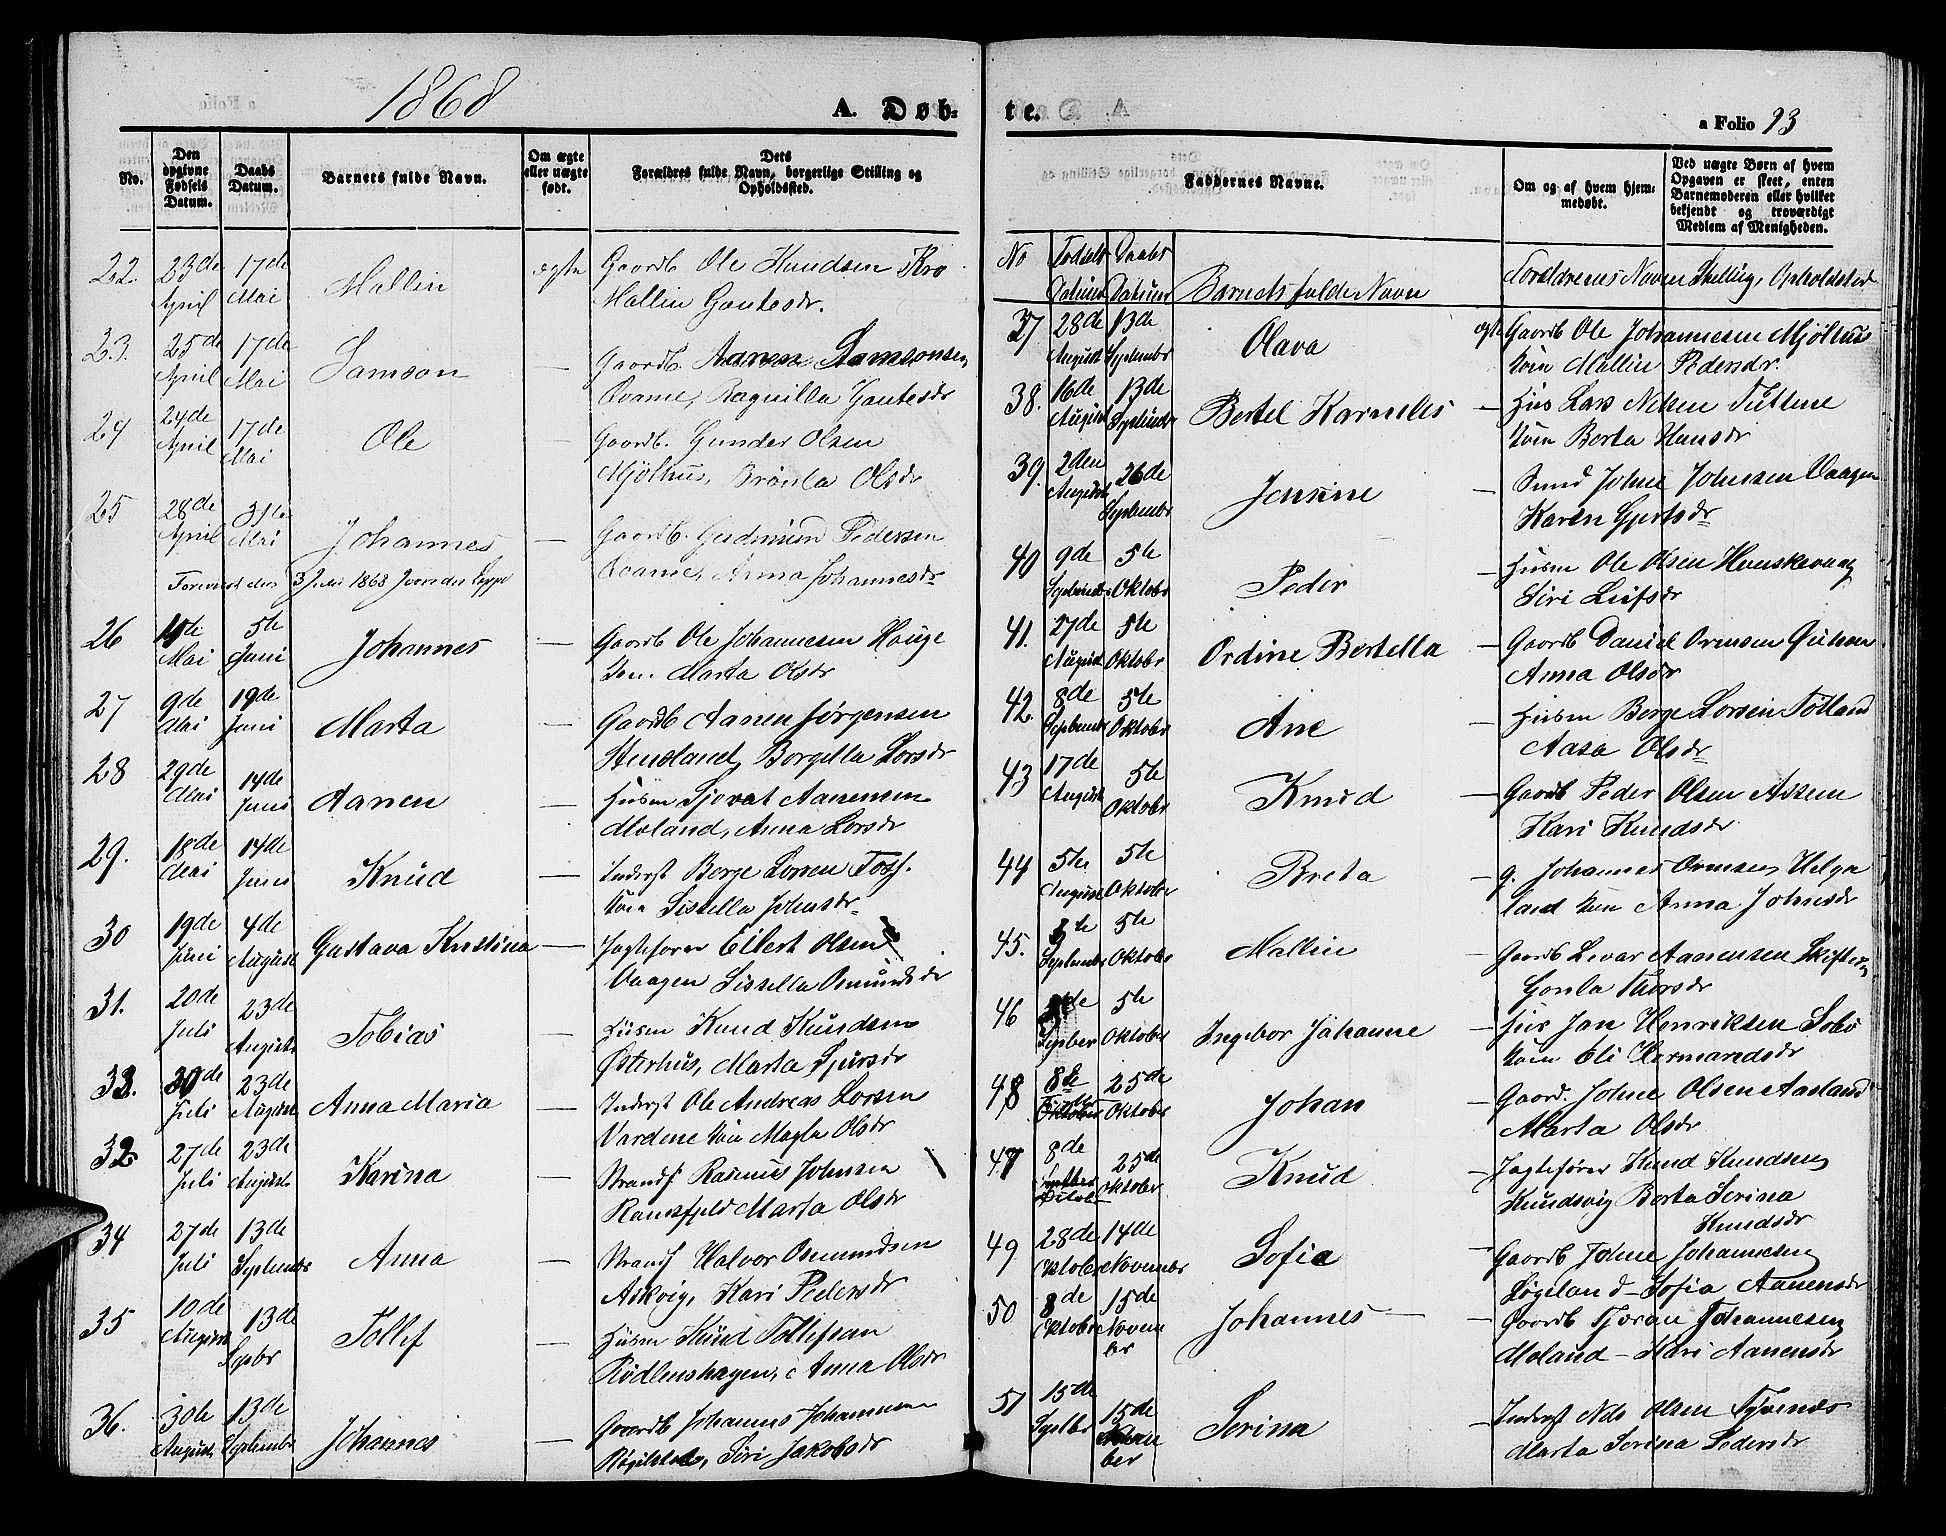 1868
A. Døb-
No.
Den opgivne Fødsels Datum.
Daabs Datum.
Barnets fulde Navn.
Om ægte eller uægte født.
Dets Forældres fulde Navn, borgerlige Stilling og Opholdsted.
22. 23de April 17de Mai Mallin ægte Gaardb Ole Knudsen Kro
Mallin Gautesdr.
23. 25de April 17de Mai Samson — Gaardb. Aanen Samsonsen
Qvame, Ragnilla Gautesdr
24 24de April 17de Mai Ole — Gaardb. Gunder Olsen
Mjølhus, Brønla Olsdr
25 28de April 31te Mai Johannes — Gaardb. Gudmund Pedersen
Qvame, Anna Johannesdr
3 Juli 1868
26 Mai 5te Juni Johannes — Gaardb Ole Johannesen Hauge
Marta Olsdr
27 9de Mai 19de Juni Marta — Gaardb Aanen Jørgensen
Stensland, Borgilla Lorsdr
28 29de Mai 14de Juni Aanen — Husm Sjovat Aanensen
Moland, Anna Lorsdr
29. 18de Mai 14de Juni Knud — Inderst Berge Lorsen
Kone Sissella Johnsdr
30 19de Juni 4de August Gustava Kristina — Jagtefører Eilert Olsen
Vaagen Sissella Osmundsdr
31. 20de Juli 23de August Tobias — Husm Knud Knudsen
Østerhus, Marta Sjursdr
33. 30de Juli 23de August Anna Maria — Inderst Ole Andreas Lorsen
Vardene Kone Magla Olsdr
32 27de Juli 23de August Karina — Strands Rasmus Johnsen
Ramsfjeld Marta Olsdr
34 27de Juli 13de September Anna — Strands Halvor Osmundsen
Askvig, Kari Pedersdr
35 10de August 13de Sepbr Tollef — Husm Knud Tollefsen
Rødlenshagen, Anna Olsdr
36. 30te August 13de September Johannes — Gaardb Johannes Johannesen
Siri Jakobsdr
te.
a Folio 93
Faddernes Navne.
Om og af hvem hjemmedøbt.
Ved uægte Børn af hvem Opgaven er skeet, enten Barnemoderen eller hvilket bekjendt og troværdigt Medlem af Menigheden.
No Fødsels Datum Daabs Datum Barnets fulde Navn Forældrenes Navn Stilling, Opholdsted
37 28de August 13de September Olava ægte Gaardb Ole Johannesen Mjølhus
Kone Mallin Pedersdr.
38. 16de August 13de September Bertel Karneles — Hus Lars Nelsen Tuttene
Kone Berta Hansdr
39. 2den August 26de September Jensine — Johne Johnsen Vaagen
Karen Gjertsdr
40 9de September 5te Oktober Peder — Husm Ole Olsen Hønskevaag
Siri Leifsdr
41. 27de August 5te Oktober Ordine Bertella — Gaardb Daniel Ormsen
Anna Olsdr
42. 8de September 5te Oktober Ane — Husm Berge Lorsen Tøtland
Aasa Olsdr
43 17de August 5te Oktober Knud — Gaardb Peder Olsen Assem
Kari Knudsdr
44 5te August 5te Oktober Breta — g. Johannes Ormsen Helge
land Kone Anna Johnsdr
45. September 5te Oktober Mallin — Gaardb Levar Aanensen
Gonla Thorsdr
46 Sepber 5te Oktober Ingebor Johanne — Hus Jan Henriksen Sobø
Kone Eli Harmandsdr
48 8de Oktober 25de Oktober Johan — Gaard. Johne Olsen Aasland
Marta Olsdr
47 8de 25de Oktober Knud — Jagtefører Knud Knudsen
Knudsvig Berta Serina
Knudsdr
49 28de Oktober 14de November Sofie — Gaardb Johne Johannesen
Løgeland — Sofia Aanensdr
50 8de Oktober 15de November Johannes — Gaardb Tjeran Johannesen
Moland — Kari Aanensdr
51 15de Sepbr 15de ber Serina — Inderst Nels Olsen
Marta Serina Pedersdr